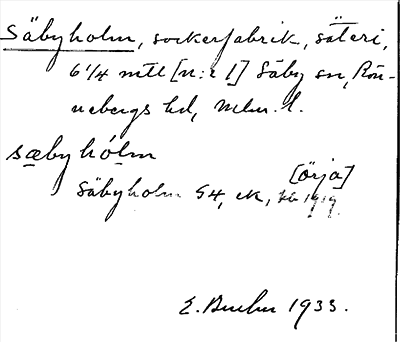 Säbyholm, sockerfabrik, säteri,
6 1/4 mtl [n:r 1] Säby sn, Rön-
nebergs hd, Mlm. l.
sæbyhólm
[örja]
Säbyholm 54, ek, 1919.
E. 1933.